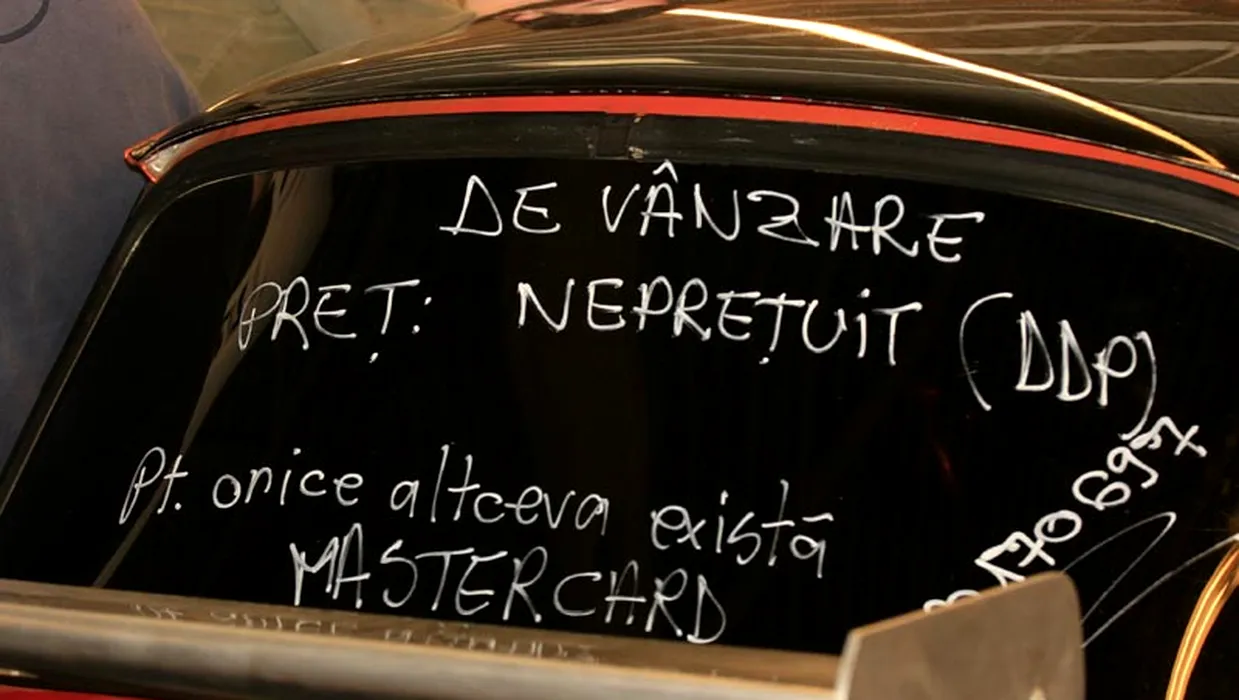 DE VÂNZARE
PREȚ: NEPREȚUIT (DDP)
Pt. orice altceva există
MASTERCARD